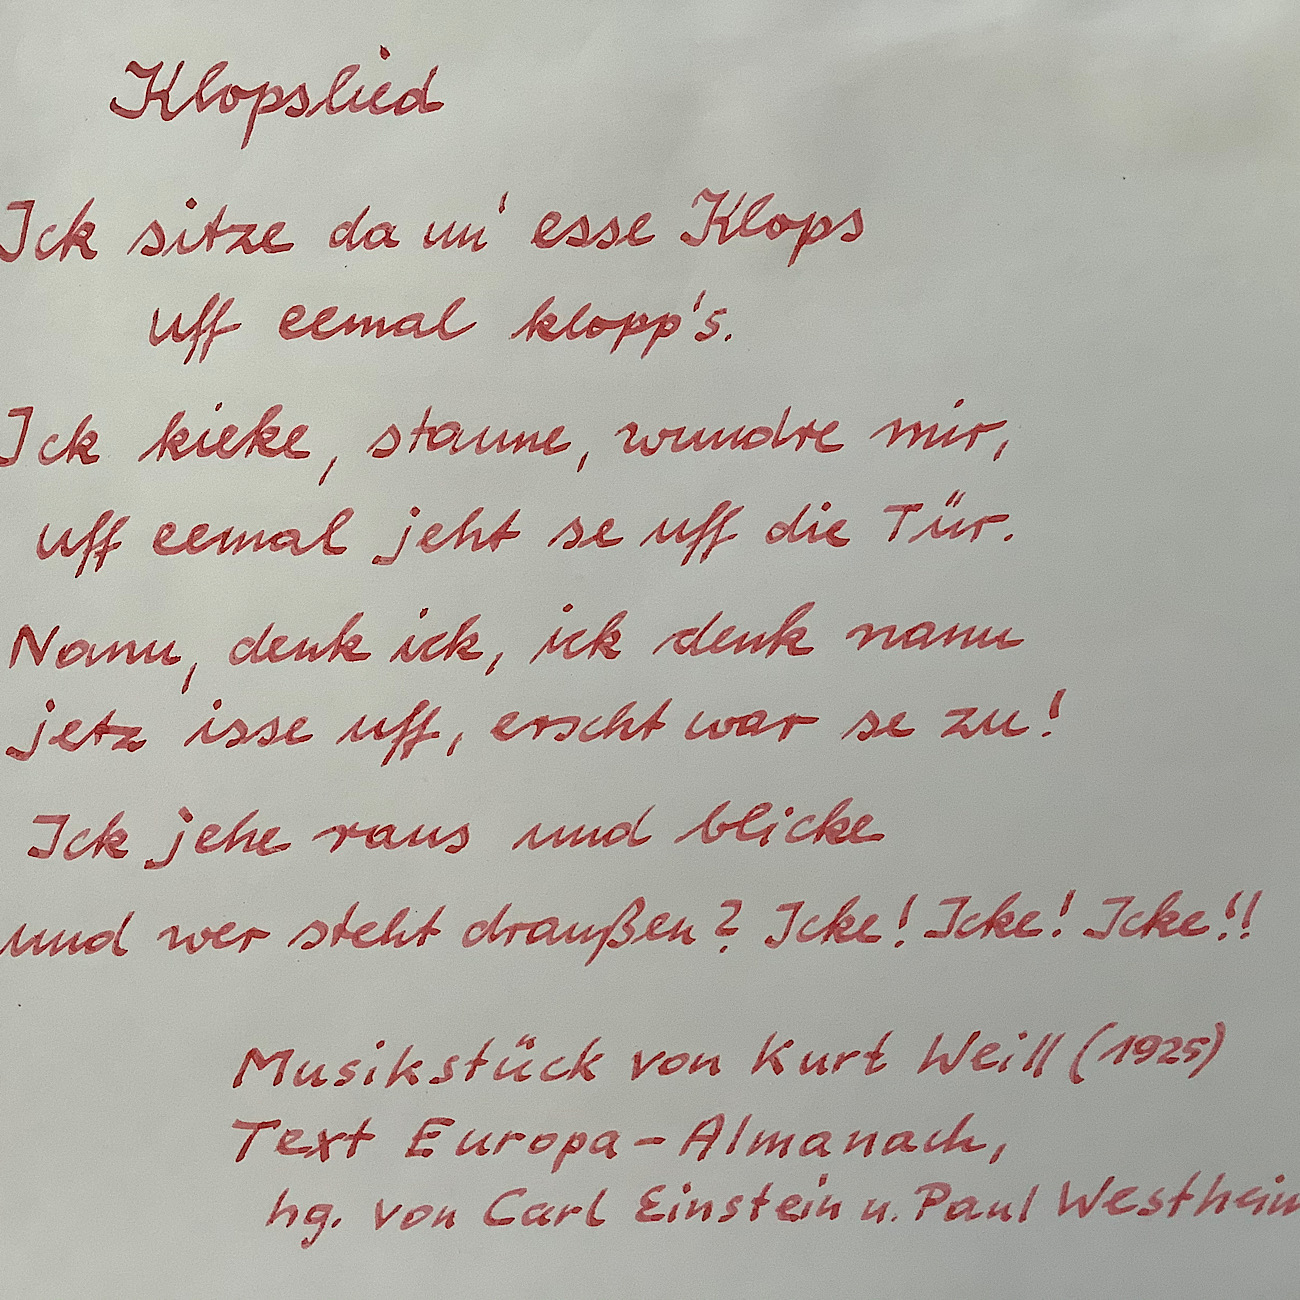 Klopslied
Ick sitze da un' esse Klops
uff eemal klopp's.
Ick kieke, staune, wundre mir,
uff eemal jeht se uff die Tür.
Nanu, denk ick, ick denk nanu
jetz isse uff, erscht war se zu!
Ick jehe raus und blicke
und wer steht draußen? Icke! Icke! Icke!!
Musikstück von Kurt Weill (1925)
Text Europa-Almanach,
hg. von Carl Einstein u. Paul Westheim